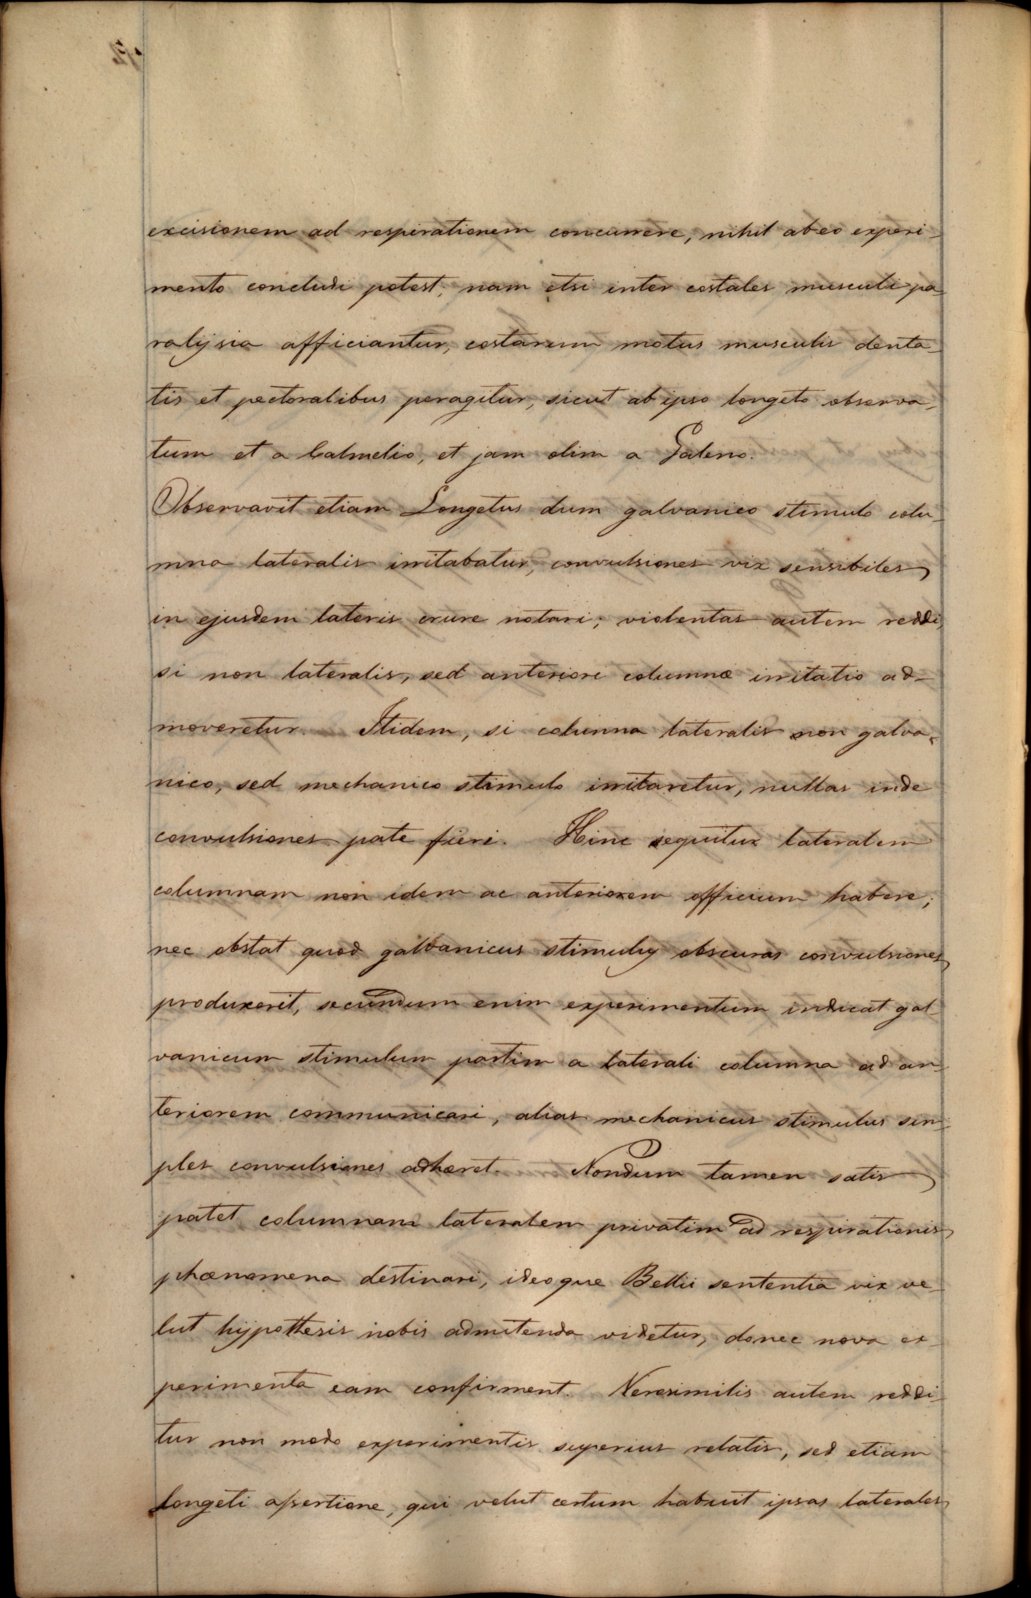 excisionem ad respirationem concurrere, nihil ab eo experi-
mento concludi potest, nam etsi inter costales musculi pa-
ralijsia afficiantur, costarum motus musculis denta-
tis et pectoralibus peragitur, sicut ab ipso Longeto observa-
tum et a Calmelio, et jam olim a Galeno.
Observavit etiam Longetus dum galvanico stimulo colu-
mna lateralis irritabatur, convulsiones vix sensibiles
in ejusdem lateris crure notari; violentas autem reddi,
si non lateralis, sed anteriori columnæ irritatio ad-
moveretur. Itidem, si columna lateralis non galva-
nico, sed mechanico stimulo irritaretur, nullas inde
convulsiones pate fieri. Hinc sequitur lateralem
columnam non idem ac anteriorem officium habere;
nec obstat quod galvanicus stimulus obscuras convulsiones
produxerit, secundum enim experimentum indicat gal
vanicum stimulum partim a laterali columna ad an-
teriorem communicari, alias mechanicus stimulus sim-
ples convulsiones adhæret. Nondum tamen satis
patet columnam lateralem privatim ad respirationis
phænomena destinari, ideoque Bellii sententia vix ve-
lut hijpothesis nobis admitenda videtur, donec nova ex-
perimenta eam confirment. Verosimilis autem reddi-
tur non modo experimentis superius relatis, sed etiam
Longeti assertione, qui velut certum habuit ipsas laterales